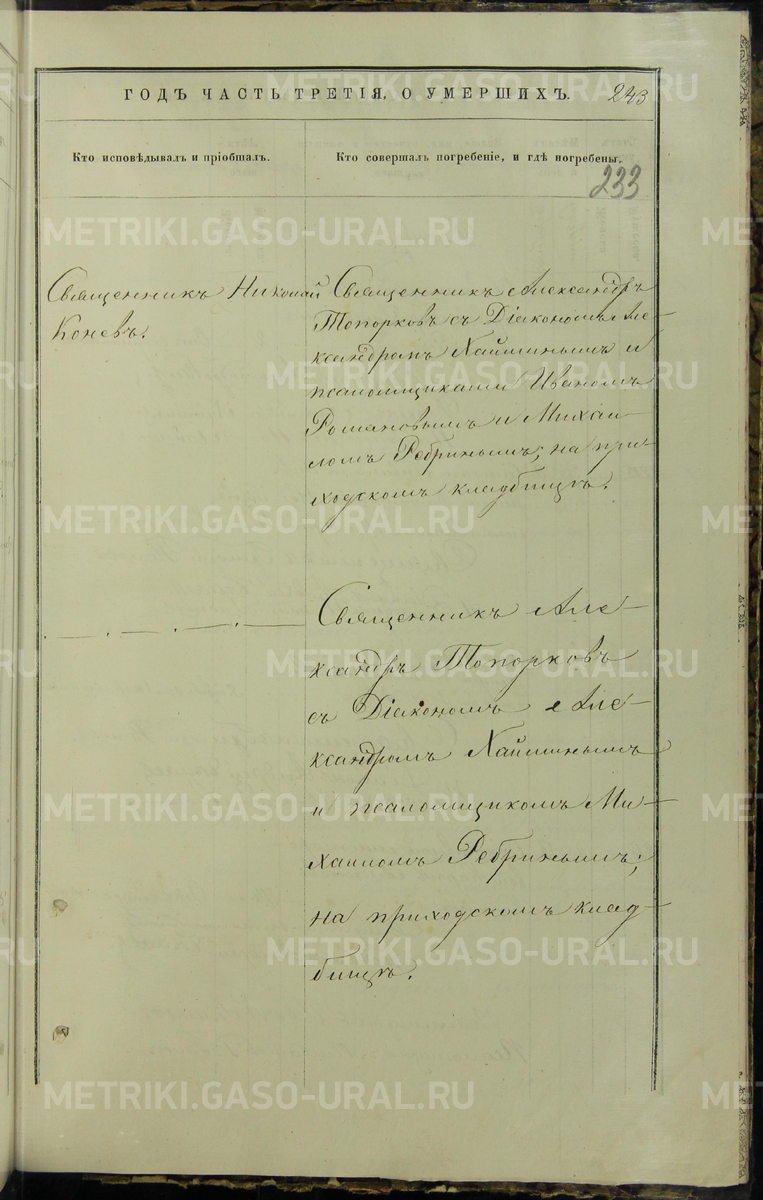 ГОДЪ ЧАСТЬ ТРЕТІЯ, О УМЕРШИХЪ. 243
Кто исповѣдывалъ и пріобщалъ.
Кто совершалъ погребеніе, и гдѣ погребены.
233
Священникъ Николай
Коневъ.
Священникъ Александръ
Топорковъ съ Діакономъ Але-
ксандромъ Хаймиными и
псаломщиками Иваномъ
Романовымъ и Михаи-
ломъ Ребринымъ; на при-
ходскомъ кладбищѣ.
Священникъ Але-
ксандръ Топорковъ
съ Діакономъ Але-
ксандромъ Хайминымъ
и псаломщикомъ Ми-
хаиломъ Ребринымъ;
на приходскомъ клад-
бищѣ.
METRIKI.GASO-URAL.RU